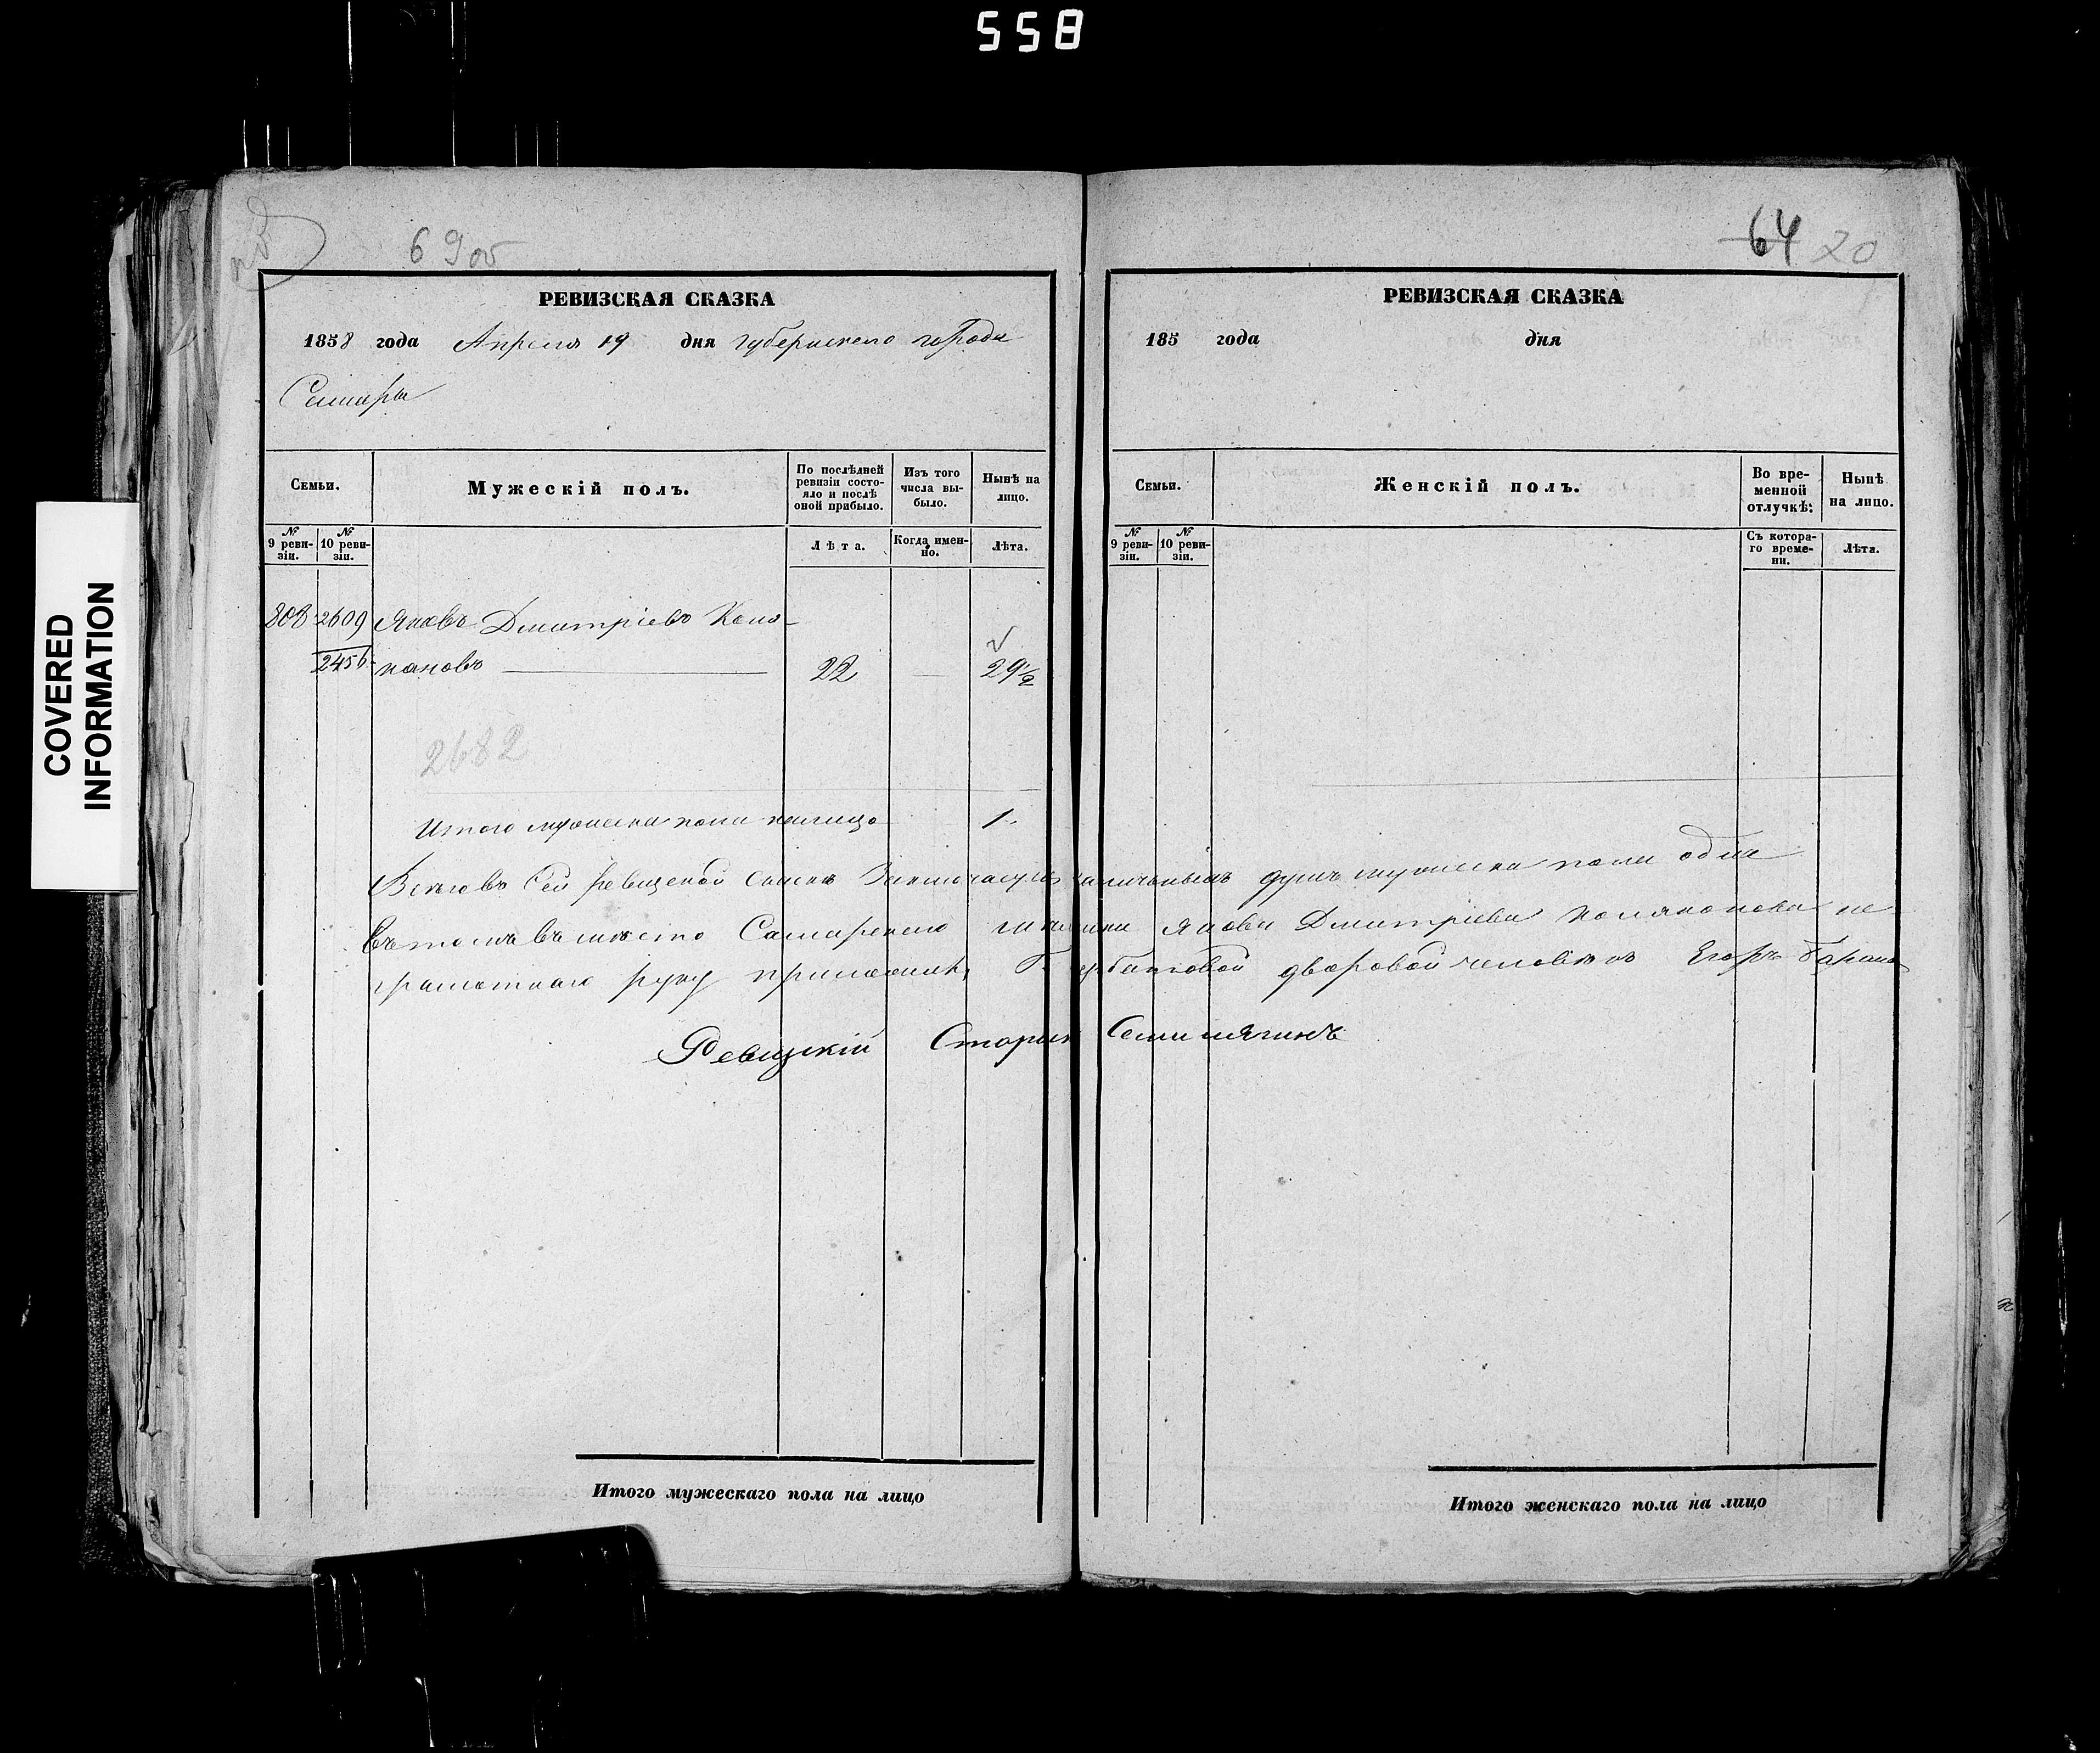 558
6 9 об
РЕВИЗСКАЯ СКАЗКА
1858 года Апреля 19 дня губернскаго города
Самары
Семьи.
Мужескій полъ.
По послѣдней ревизіи состояло и послѣ оной прибыло.
Изъ того числа выбыло.
Нынѣ на лицо.
№ 9 ревизіи.
№ 10 ревизіи.
Лѣта.
Когда именно.
Лѣта.
808 2609 Яковъ Дмитріевъ
2456 22 — 29½
2682
Итого мужеска пола налицо 1.
64 20
РЕВИЗСКАЯ СКАЗКА
185 года дня
Семьи.
Женскій полъ.
Во временной отлучкѣ:
Нынѣ на лицо.
№ 9 ревизіи.
№ 10 ревизіи.
Съ котораго времени.
Лѣта.
Сей Ревизской сказкѣ наличныхъ душъ мужеска пола одна
въ томъ вместо Самарскаго Якова Дмитріева не
грамотнаго руку приложилъ дворовой человѣкъ Егоръ
Ревизскій Семилягинъ
Итого мужескаго пола на лицо
Итого женскаго пола на лицо
COVERED
INFORMATION